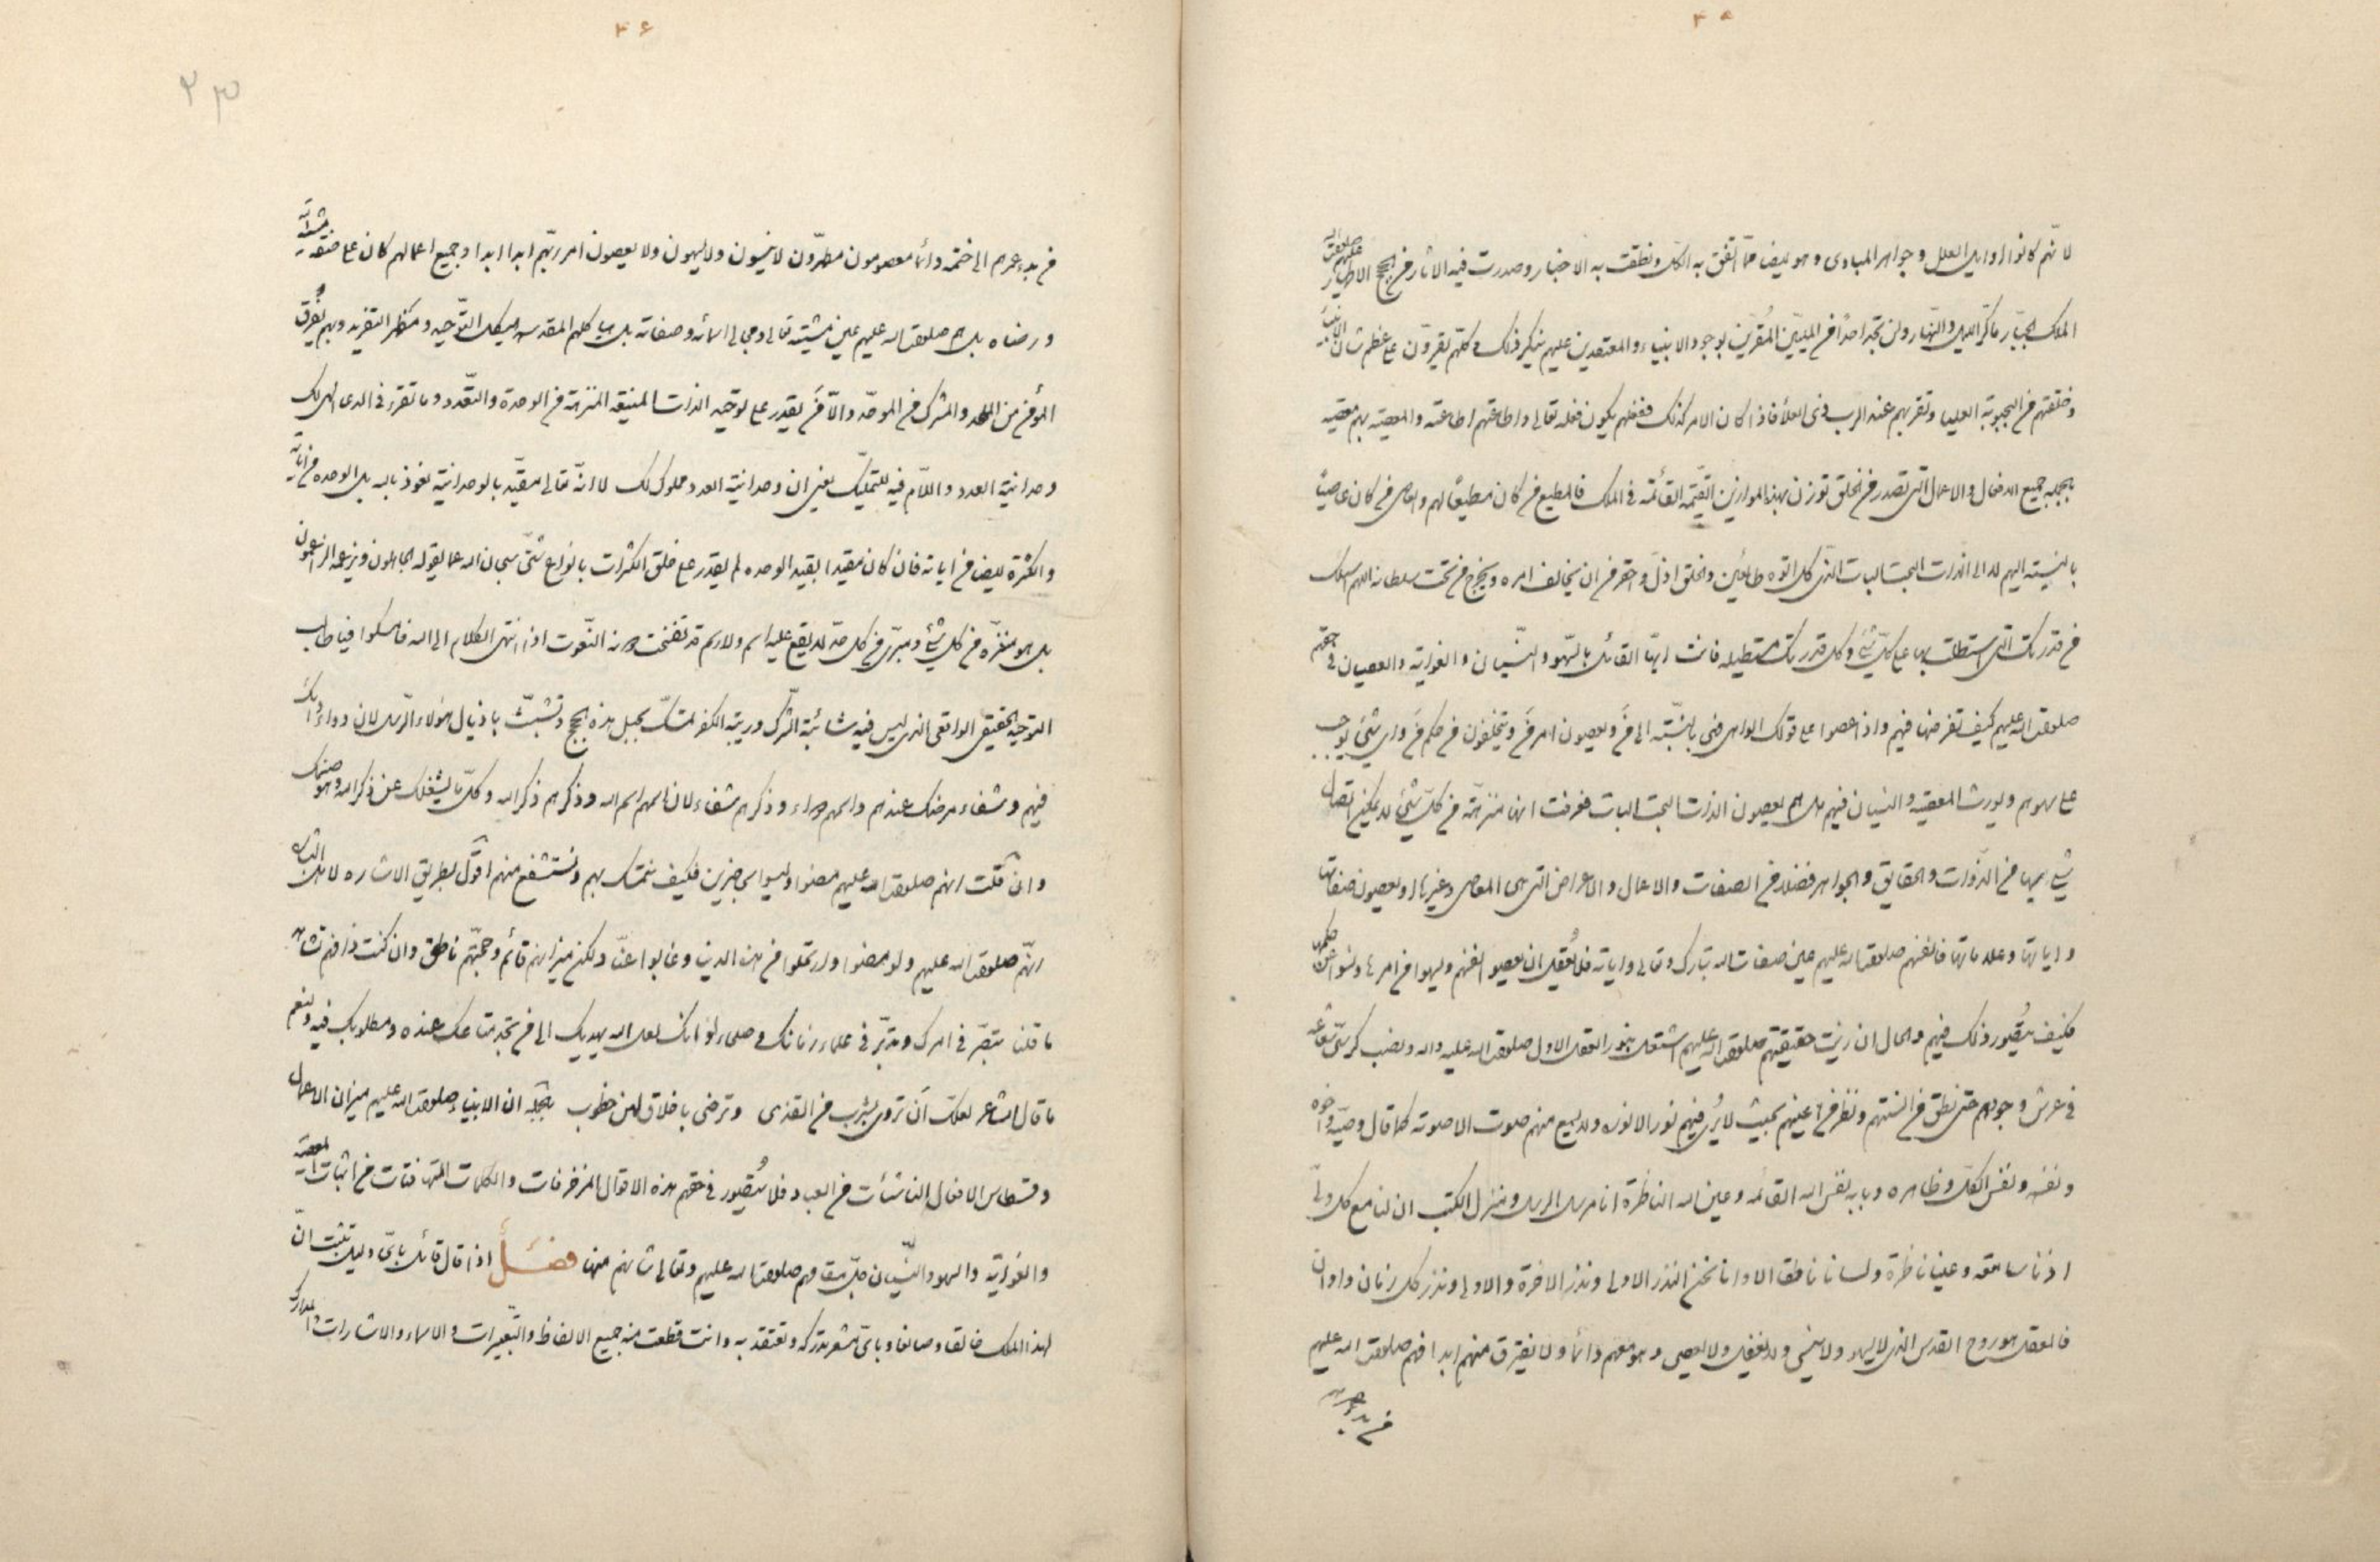 ۴۵
لانهم كانوا اوايل العلل وجواهر المبادى وهو ايضا مما اتفق به الكل ونطقت به الاخبار وصدرت فيه الاثار من الحجج الاطهار صلوات الله عليهم
الملك الجبار ماكر الليل والنهار ولن تجد احدا من المليين المقرين بوجود الانبياء والمعتقدين عليهم ينكر ذلك وكلهم يقرون على عظم شان الانبياء
وخلقتهم من العليا وتقربهم عند الرب ذى العلا فاذا كان الامر كذلك ففعلهم يكون فعله تعالى واطاعتهم اطاعته والمعصية بهم معصيته
بالجمله جميع الافعال والاعمال التى تصدر من الخلق توزن بهذا الموازين القيمة القائمة فى الملك فالمطيع من كان مطيعا لهم والعاصى من كان عاصيا
بالنسبة اليهم لا الى الذات البحت البات التى كل اتوه طائعين والخلق اذل واحقر من ان يخالف امره ويخرج من تحت سلطانه اللهم اسئلك
من قدرتك التى استطلت بها على كل شئ وكل قدرتك مستطيلة فانت ايها القائل بالسهو والنسيان والغواية والعصيان فى حقهم
صلوات الله عليهم كيف تفرض فيهم واذا عصوا على قولك الواهى فبالنسبة الى من ويعصون امر من ويتخلفون من حكم من واى شئ يوجب
على سهوهم ويورث المعصية والنسيان فيهم بل هم يعصون الذات البحت البات فعرفت انها منزهة من كل شئ لا يمكن اتصال
شئ بها من الذوات والحقايق والجواهر فضلا من الصفات والاعمال والاعراض التى هى المعاصى وغيرها او يعصون صفاتها
واياتها وعلاماتها فانفسهم صلوات الله عليهم عين صفات الله تبارك وتعالى واياته فلا يعقل ان يعصوا انفسهم ويسهوا من امرها وينسوا عن حكمها
فكيف يتصور ذلك فيهم والحال ان زيت حقيقتهم صلوات الله عليهم اشتعل بنور العقل الاول صلوات الله عليه واله ونصب كرسى
فى عرش وجودهم حتى نطق من السنتهم ونظر من اعينهم بحيث لا يرى فيهم نور الا نوره ولا يسمع منهم صوت الا صوته كما قال وصيه واخوه
ونفسه ونفس الكل وظاهره وبابه نفس الله القائمة وعين الله الناظرة انا مرسل الرسل ومنزل الكتب ان لنا مع كل ولى
اذنا سامعة وعينا ناظرة ولسانا ناطقا الا وانا نحن النذر الاولى ونذر الاخرة والاولى ونذر كل زمان واوان
فالعقل هو روح القدس الذى لا يلهو ولا ينسى ولا يغفل ولا يعصى وهو معهم دائما ولا يفترق منهم ابدا فهم صلوات الله عليهم
من بدو عمرهم
۴۶
۲۳
من بدء عمرهم الى ختمه دائما معصومون مطهرون لا ينسون ولا يسهون ولا يعصون امر ربهم ابدا ابدا وجميع اعمالهم كان على مشيته
ورضاه بل هم صلوات الله عليهم عين مشيته تعالى ومجالى اسمائه وصفاته بل هياكلهم المقدسه هيكل التوحيد ومظهر التفريد وبهم يفرق
المؤمن من الملحد والمشرك من الموحد والا فمن يقدر على توحيد الذات المنيعة المنزهة من الوحدة والتعدد وما تقرء فى الدعا الهى لك
وحدانية العدد واللام فيه للتمليك يعنى ان وحدانية العدد مملوك لك لا انه تعالى مقيد بالوحدانية نعوذ بالله بل الوحده من اياته
والكثرة ايضا من اياته فان كان مقيدا بقيد الوحده لم يقدر على خلق الكثرات بانواع شتى سبحان الله عما يقوله الجاهلون ويزعمه الزاعمون
بل هو منزه من كل شئ ومبرى من كل حد لا يقع عليه اسم ولا رسم قد تفسخت دونه النعوت اذا انتهى الكلام الى الله فامسكوا فيا طالب
التوحيد الحقيقى الواقعى الذى ليس فيه شائبة الشرك وريبة الكفر تمسك بحبل هذه الحجج وتشبث باذيال هؤلاء الرسل لان دوائك
فيهم وشفاء مرضك عندهم واسمهم دواء وذكرهم شفاء لان اسمهم اسم الله وذكرهم ذكر الله وكل ما يشغلك عن ذكر الله فهو صنمك
وان قلت انهم صلوات الله عليهم مضوا وليسوا بحاضرين فكيف نتمسك بهم ونستشفع منهم اقول بطريق الاشاره لاهل البشاره
انهم صلوات الله عليهم ولو مضوا وارتحلوا من هذه الدنيا وغابوا عنا ولكن ميزانهم قائم وحجتهم ناطق وان كنت ذا فهم تشاهد
ما قلنا تبصر فى امرك وتدبر فى علماء زمانك وصلحاء اوانك لعل الله يهديك الى من تجد متاعك عنده ومطلوبك فيه ولنعم
ما قال الشاعر لعلك ان تروى بشرب من القذى وترضى باخلاق لهن خطوب بالجمله ان الانبياء صلوات الله عليهم ميزان الاعمال
وقسطاس الافعال الناشئات من العباد فلا يتصور فى حقهم هذه الاقوال المزخرفات والكلمات المتهافتات من اثبات المعصية
والغواية والسهو والنسيان جل مقامهم صلوات الله عليهم وتعالى شانهم منها فصل اذا قال قائل باى دليل تثبت ان
لهذا الملك خالقا وصانعا وباى مشعر تدركه وتعتقد به وانت قطعت منه جميع الالفاظ والتعبيرات والاسماء والاشارات